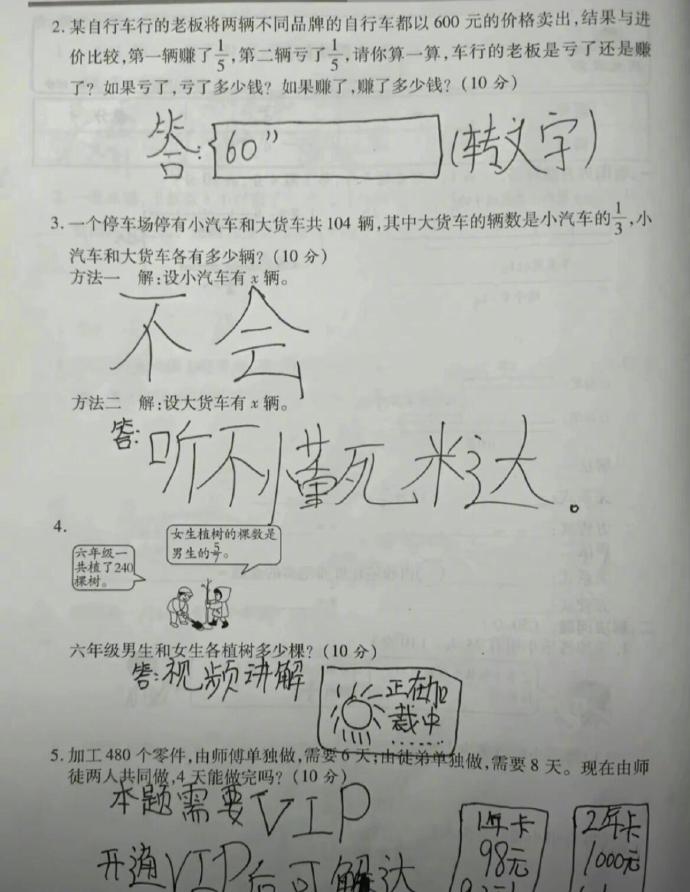 2. 某自行车行的老板将两辆不同品牌的自行车都以 600 元的价格卖出,结果与进
价比较,第一辆赚了1/5,第二辆亏了1/5,请你算一算,车行的老板是亏了还是赚
了? 如果亏了,亏了多少钱? 如果赚了,赚了多少钱? (10 分)
答: 60" (转文字)
3. 一个停车场停有小汽车和大货车共 104 辆,其中大货车的辆数是小汽车的1/3,小
汽车和大货车各有多少辆? (10 分)
方法一 解:设小汽车有 x 辆。
不会
方法二 解:设大货车有 x 辆。
答: 听不懂死米达。
4.
六年级一
共植了240
棵树。
女生植树的棵数是
男生的5/7。
六年级男生和女生各植树多少棵? (10 分)
答:视频讲解
正在加
载中
5. 加工 480 个零件,由师傅单独做,需要 6 天;由徒弟单独做,需要 8 天。现在由师
徒两人共同做,4 天能做完吗? (10 分)
本题需要VIP
开通VIP后可解达
1年卡
98元
2年卡
1000元